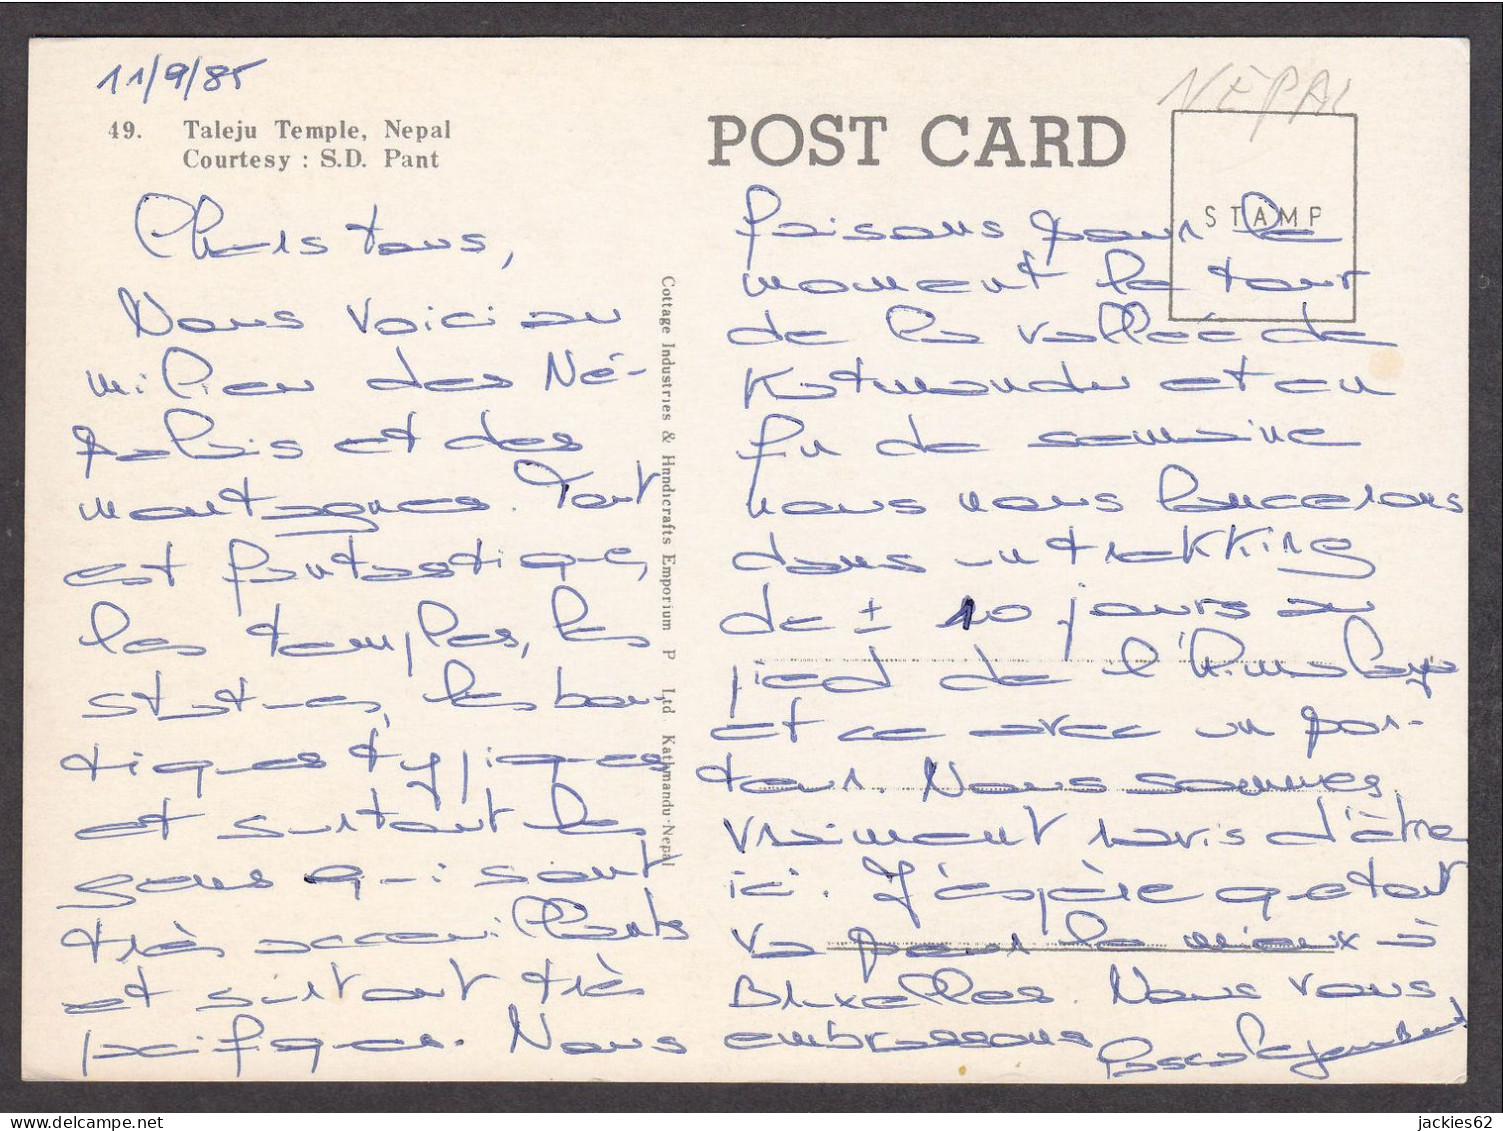 11/9/85
49. Taleju Temple, Nepal
Courtesy : S.D. Pant
POST CARD
NÉPAL
STAMP
Chers tous,
Nous voici au
milieu des Né-
palais et des
montagnes. Tout
est fantastique,
les temples, les
statues, les bou,
tiques typiques
et surtout les
gens qui sont
très accueillants
et surtout très
pacifiques. Nous
Cottage Industries & Handicrafts Emporium P Ltd Kathmandu-Nepal
faisons pour le
moment le tour
de la vallée de
Katmandu et en
fin de semaine
nous nous lancerons
dans un trekking
de ± 10 jours au
pied de l'Himalaya
et ce avec un por-
teur. Nous sommes
vraiment ravis d'être
ici. J'espère que tout
va pour le mieux à
Bruxelles. Nous vous
embrassons
jackies62